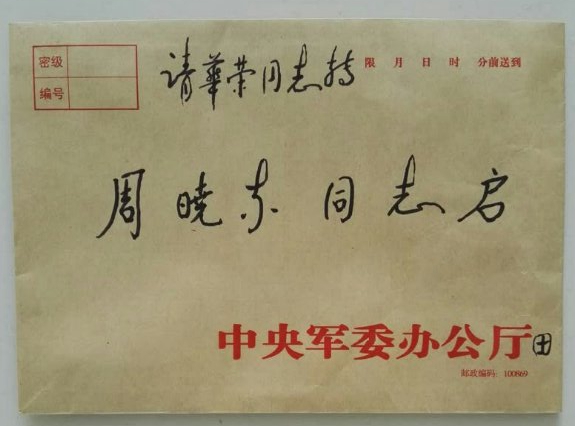 密级
编号
请華荣同志转
限 月 日 时 分前送到
周曉东同志启
中央军委办公厅田
邮政编码: 100869